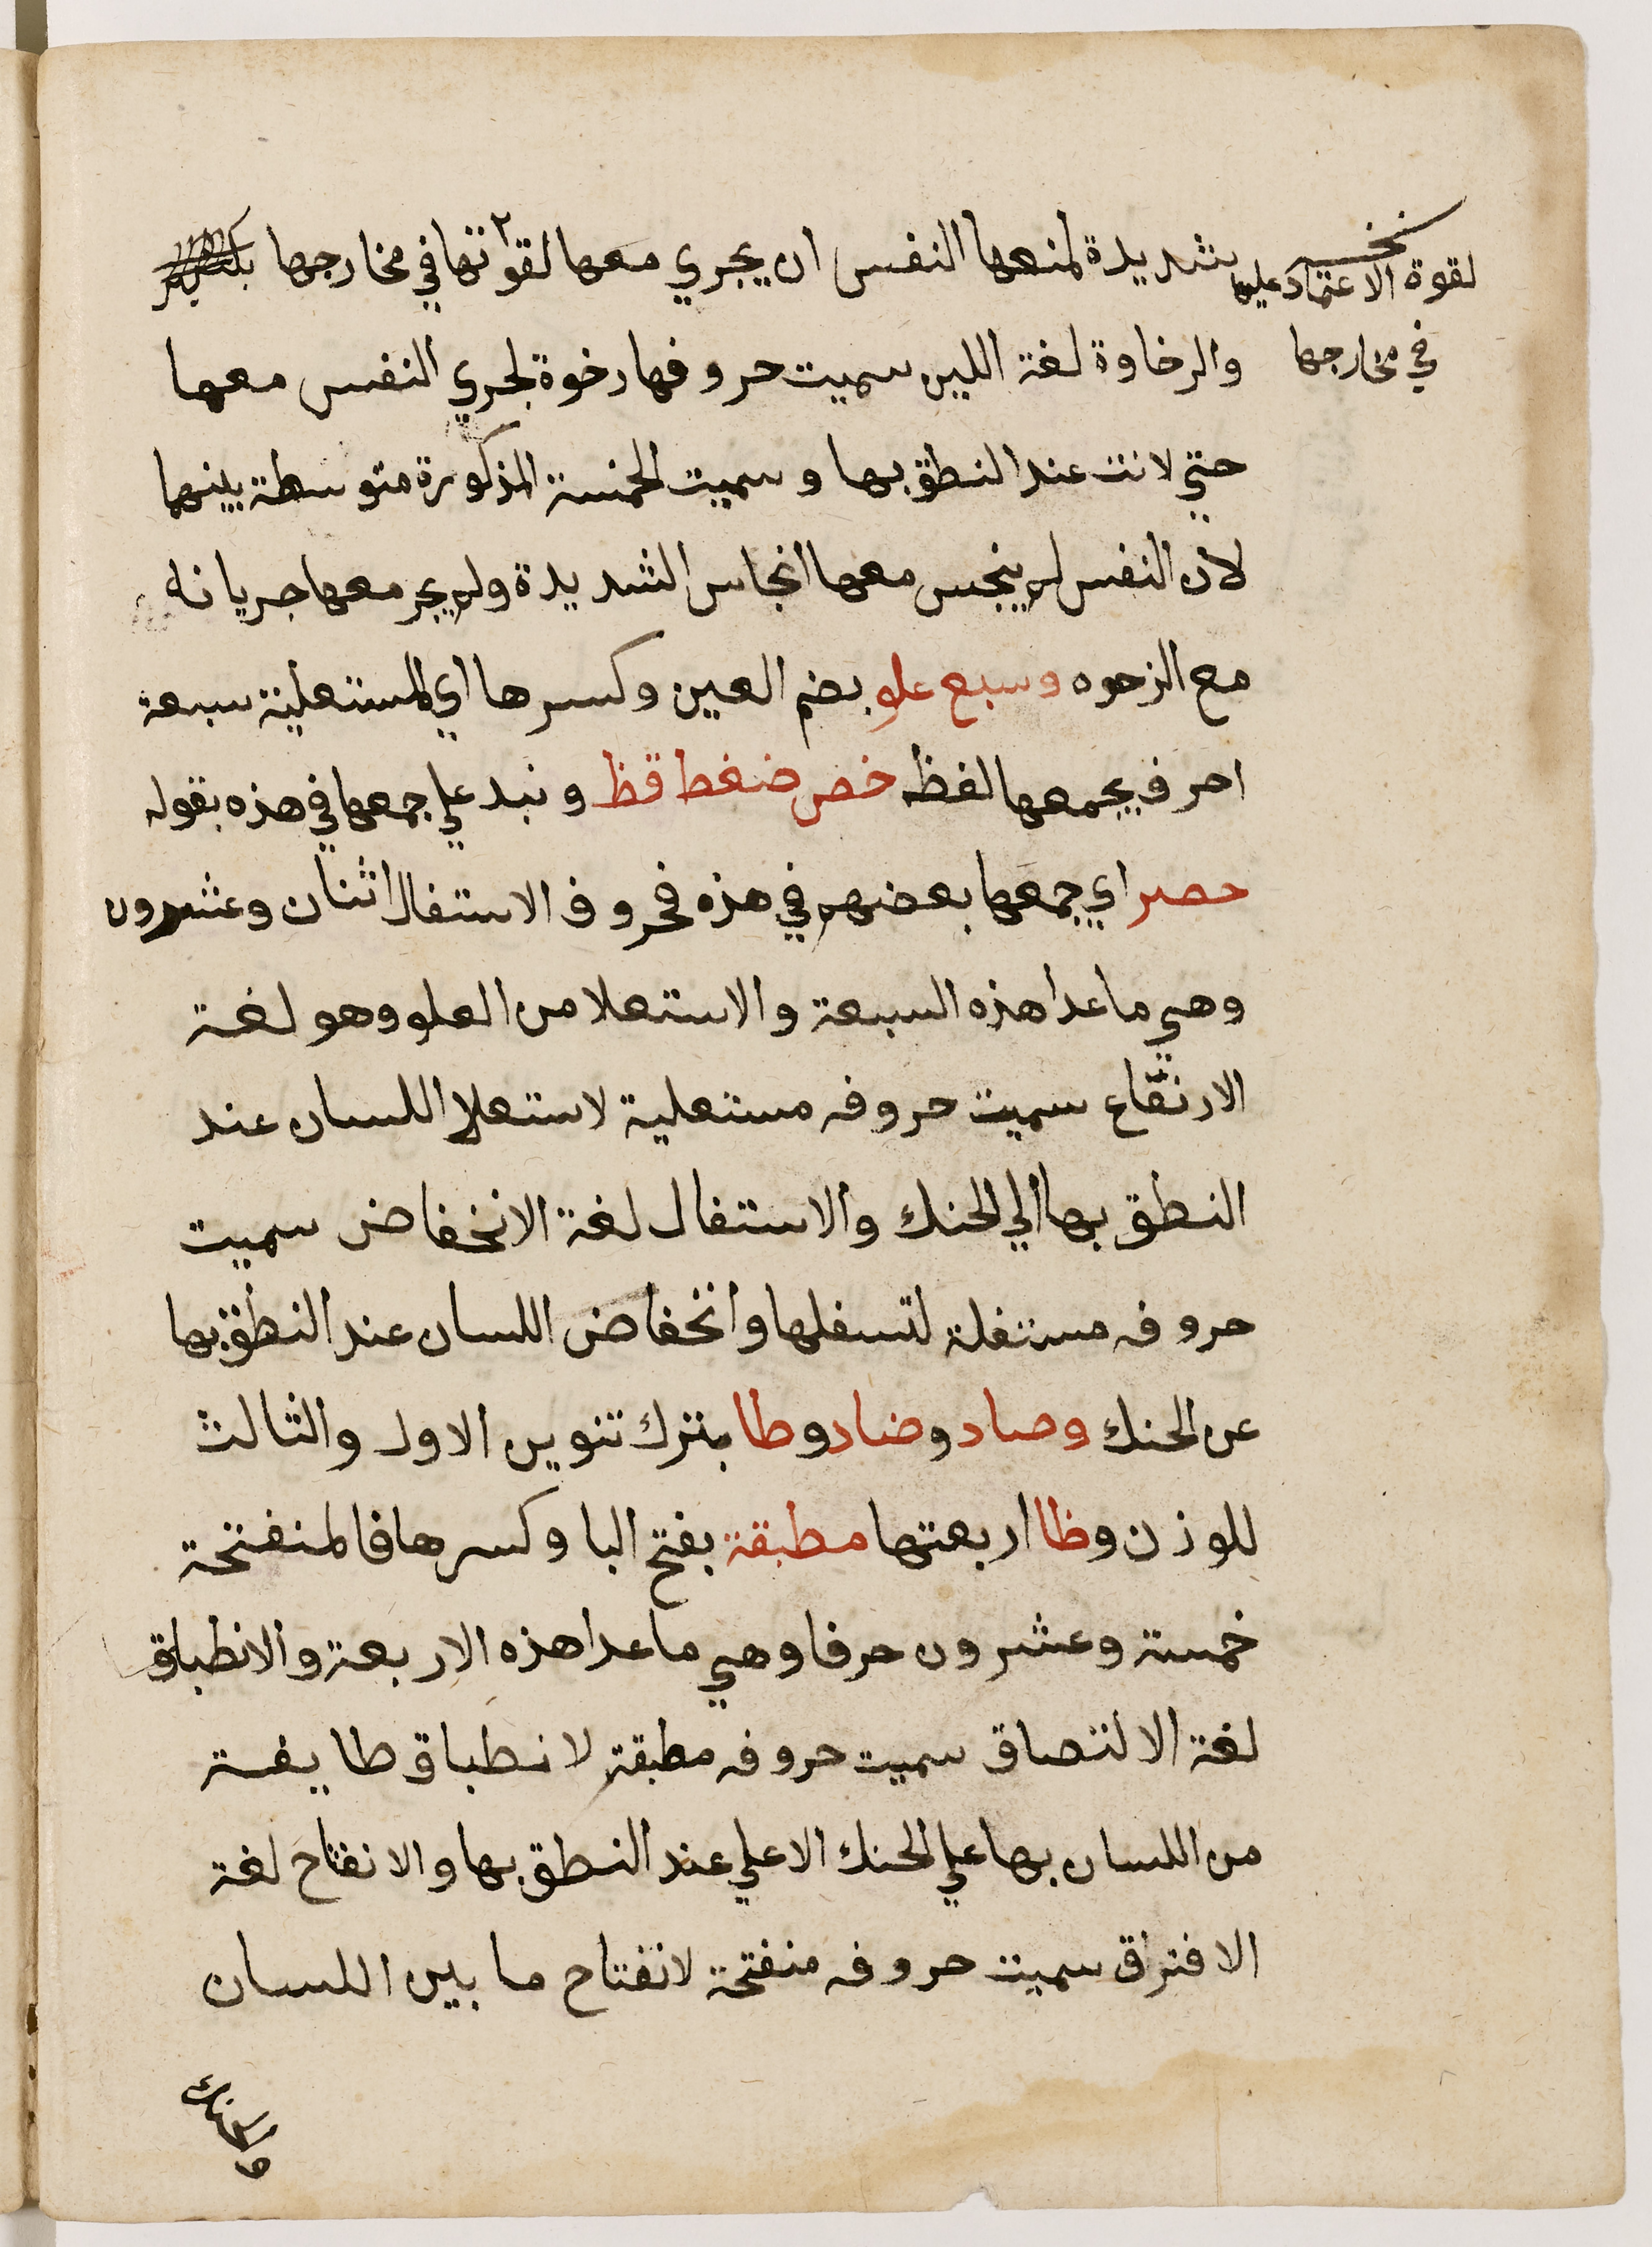 شديدة لمنعها النفس ان يجري معها لقوتها في مخارجها
والرخاوة لغة اللين سميت حروفها رخوة لجري النفس معها
حتي لانت عند النطق بها وسميت الخمسة المذكورة متوسطة بينهما
لان النفس لم ينحبس معها انحباس الشديدة ولم يجر معها جريانه
مع الرخوه وسبع علو بضم العين وكسرها اي المستعلية سبعة
احرف يجمعها لفظ خص ضغط قظ ونبه علي جمعها في هذه بقوله
حصر اي جمعها بعضهم في هذه فحروف الاستفال اثنان وعشرون
وهي ما عدا هذه السبعة والاستعلا من العلو وهو لغة
الارتفاع سميت حروفه مستعلية لاستعلا اللسان عند
النطق بها الي الحنك والاستفال لغة الانخفاض سميت
حروفه مستفلة لتسفلها وانخفاض اللسان عند النطق بها
عن الحنك وصاد وضاد وطا بترك تنوين الاول والثالث
للوزن وظا اربعتها مطبقة بفتح البا وكسرها فالمنفتحة
خمسة وعشرون حرفا وهي ما عدا هذه الاربعة والانطباق
لغة الالتصاق سميت حروفه مطبقة لانطباق طايفة
من اللسان بها علي الحنك الاعلي عند النطق بها والانفتاح لغة
الافتراق سميت حروفه منفتحة لانفتاح ما بين اللسان
لقوة الاعتماد عليها
في مخارجها